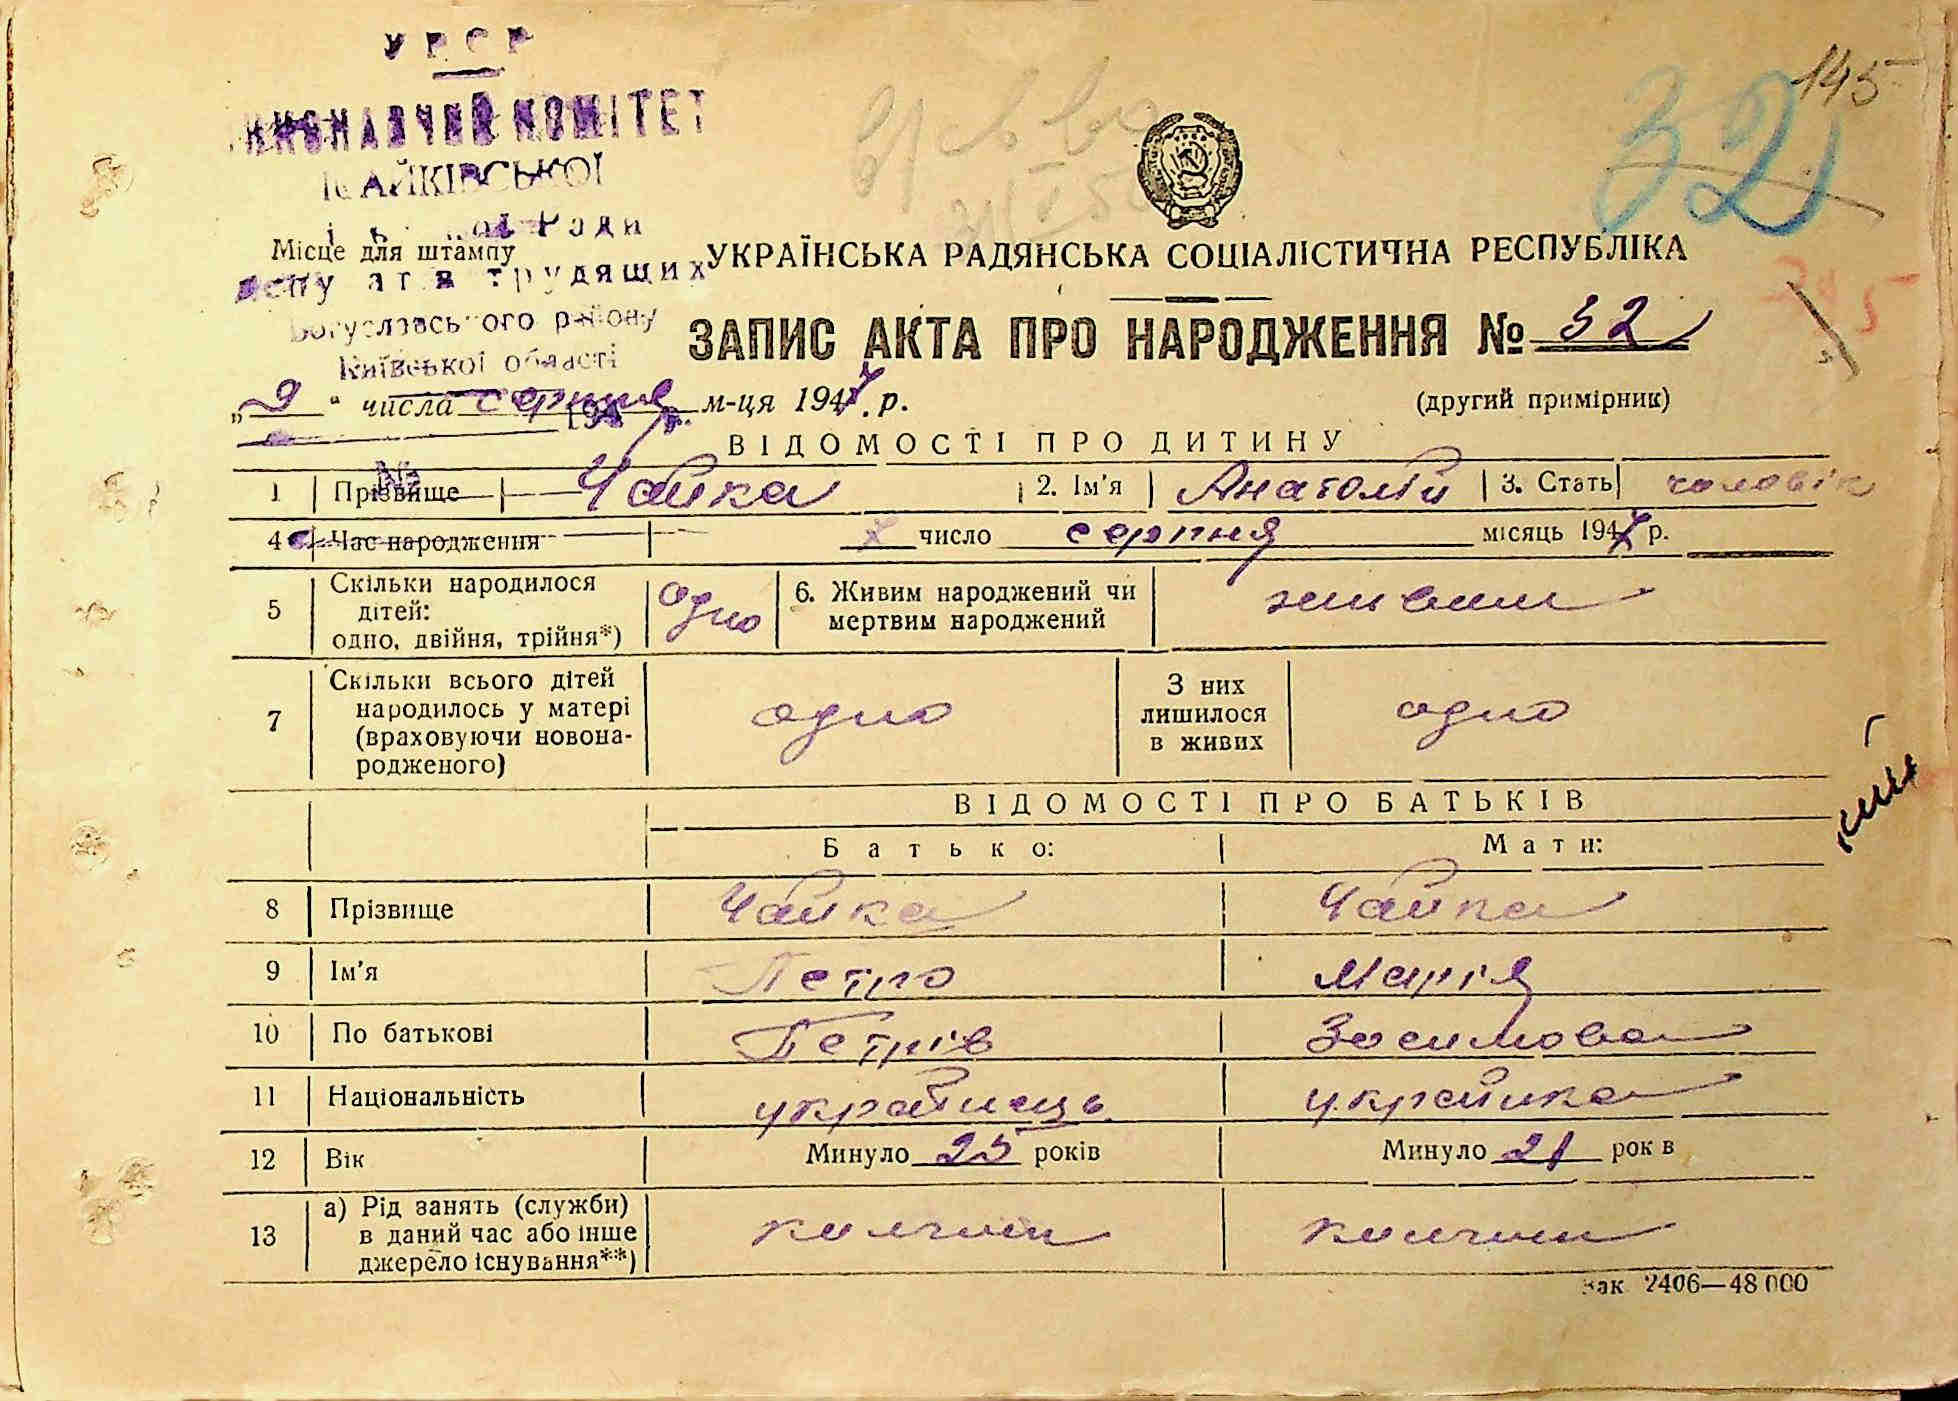 УРСР
ВИКОНАВЧИЙ КОМІТЕТ
ІСАЙКІВСЬКОЇ
Ради
Місце для штампу
трудящих
Богуславського району
Київської області
145
32
УКРАЇНСЬКА РАДЯНСЬКА СОЦІАЛІСТИЧНА РЕСПУБЛІКА
ЗАПИС АКТА ПРО НАРОДЖЕННЯ № 32
„9“ числа серпня м-ця 1947 р.
(другий примірник)
№
ВІДОМОСТІ ПРО ДИТИНУ
1 Прізвище Чайка 2. Ім'я Анатолій 3. Стать чоловік
4 Час народження число серпня місяць 1947 р.
5 Скільки народилося дітей: одно, двійня, трійня*) одно 6. Живим народжений чи мертвим народжений живим
7 Скільки всього дітей народилось у матері (враховуючи новонародженого) одно З них лишилося в живих одно
ВІДОМОСТІ ПРО БАТЬКІВ
Батько: Мати:
8 Прізвище Чайка Чайка
9 Ім'я Петро Марія
10 По батькові Петрів Зосимова
11 Національність українець українка
12 Вік Минуло 25 років Минуло 21 рок в
13 а) Рід занять (служби) в даний час або інше джерело існування**)
Зак. 2406—48 000